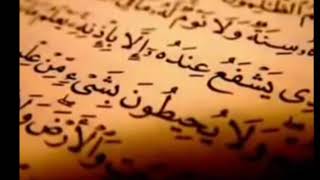 سِنَةٌ وَلَا نَوْمٌ لَهُ
يَشْفَعُ عِنْدَهُ إِلَّا بِإِذْنِهِ يَعْلَمُ
وَلَا يُحِيطُونَ بِشَيْءٍ مِنْ
وَالْأَرْضَ